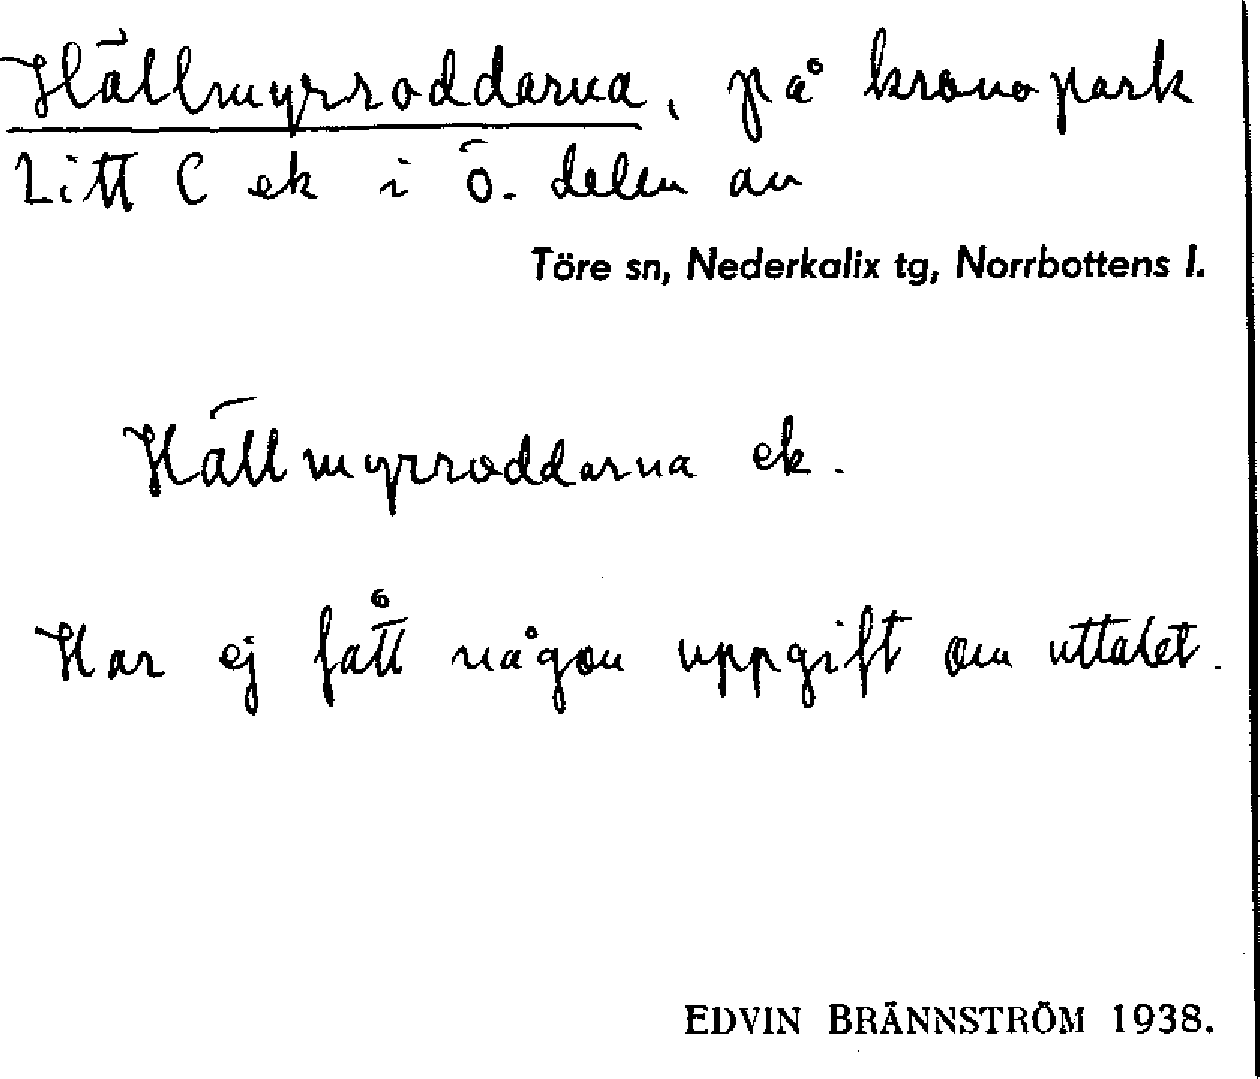 Hällmyrroddarna, på kronopark
Litt C ek i ö. delen av
Töre sn, Nederkalix tg, Norrbottens l.
Hällmyrroddarna ek.
Har ej fått någon uppgift om uttalet.
EDVIN BRÄNNSTRÖM 1938.